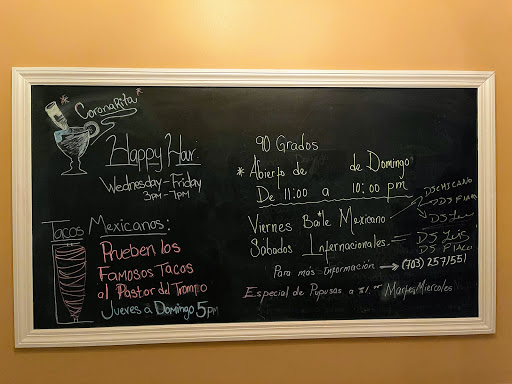 *CoronaRita*
Happy Hour
Wednesday-Friday
3PM-7PM
Tacos Mexicanos:
Prueben los
Famosos Tacos
al Pastor del Trompo
Jueves a Domingo 5PM
90 Grados
* Abierto de de Domingo
De 11:00 a 10:00 pm
Viernes Baile Mexicano
DJ
DJ
Sábados Internacionales.
DJ Luis
DJ
Para más información → (703) 2571551
Especial de Pupusas a $1. Martes, Miercoles